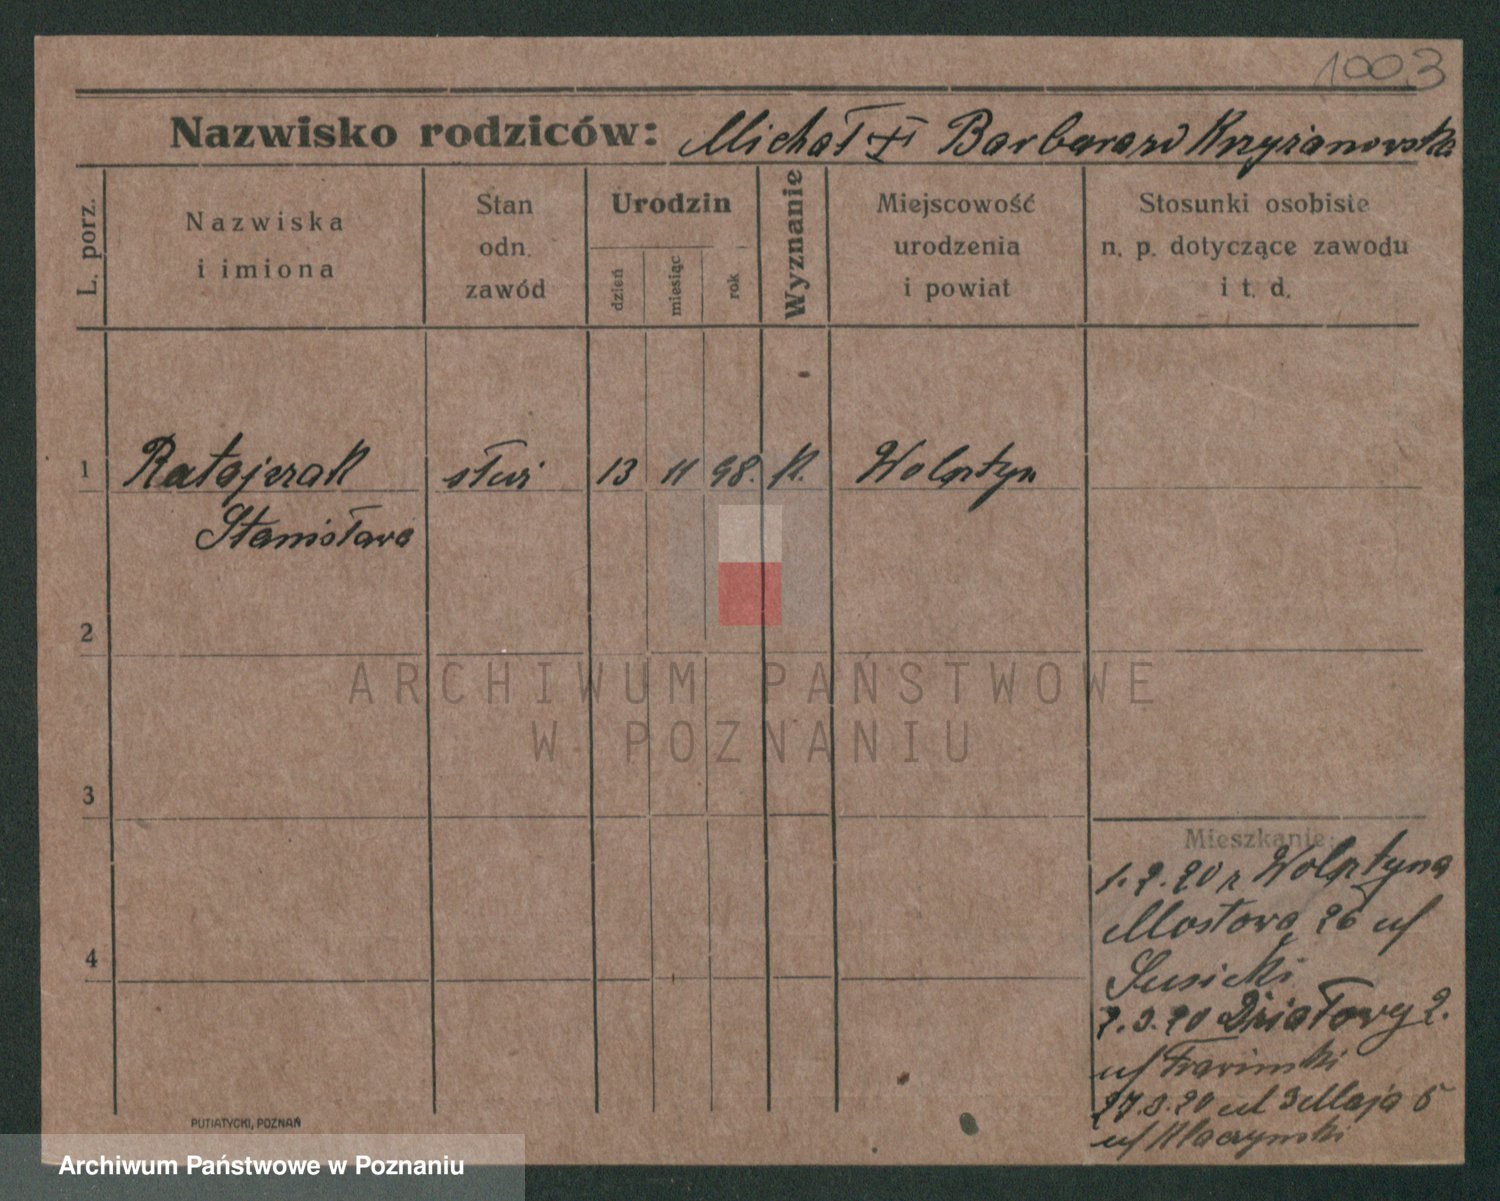 1003
Nazwisko rodziców: Michał Barbara Krzyżanowska
L. porz.
Nazwiska
i imiona
Stan
odn.
zawód
Urodzin
dzień
miesiąc
rok
Wyznanie
Miejscowość
urodzenia
i powiat
Stosunki osobiste
n. p. dotyczące zawodu
i t. d.
1 Ratajczak służ 13 11 98. K. Wolsztyn
Stanisława
2
ARCHIWUM PAŃSTWOWE
W POZNANIU
3
4
Mieszkanie:
1.2.20 z Wolsztyna
Mostowa 26
Susicki
Działowy 2.
27.3.20 ul 3 Maja 5
PUTIATYCKI, POZNAŃ
Archiwum Państwowe w Poznaniu